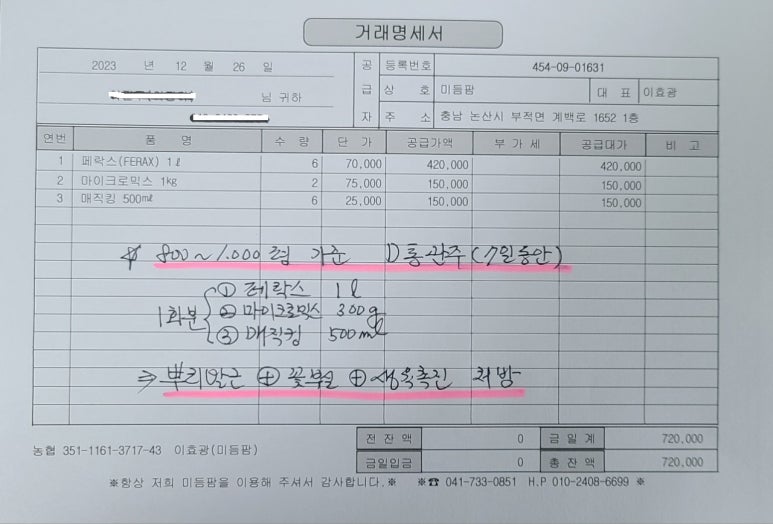 거래명세서
2023 년 12 월 26 일
님 귀하
공급자
등록번호 454-09-01631
상 호 미듬팜 대 표 이효광
주 소 충남 논산시 부적면 계백로 1652 1층
연번 품 명 수 량 단 가 공급가액 부 가 세 공급대가 비 고
1 페락스(FERAX) 1ℓ 6 70,000 420,000 420,000
2 마이크로믹스 1kg 2 75,000 150,000 150,000
3 매직킹 500㎖ 6 25,000 150,000 150,000
800~1,000평 기준 D통관주(7일동안)
1회분
① 페락스 1ℓ
② 마이크로믹스 300g
③ 매직킹 500ml
⇒ 뿌리발근 ⊕ 꽃부실 ⊕ 생육촉진 처방
전 잔 액 0 금 일 계 720,000
농협 351-1161-3717-43 이효광(미듬팜)
금일입금 0 총 잔 액 720,000
※항상 저희 미듬팜을 이용해 주셔서 감사합니다.※ ※☎ 041-733-0851 H.P 010-2408-6699 ※